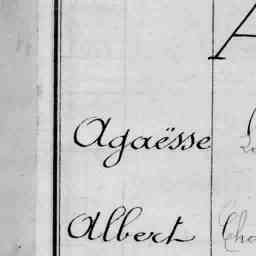 A
Agaësse
Albert Cha